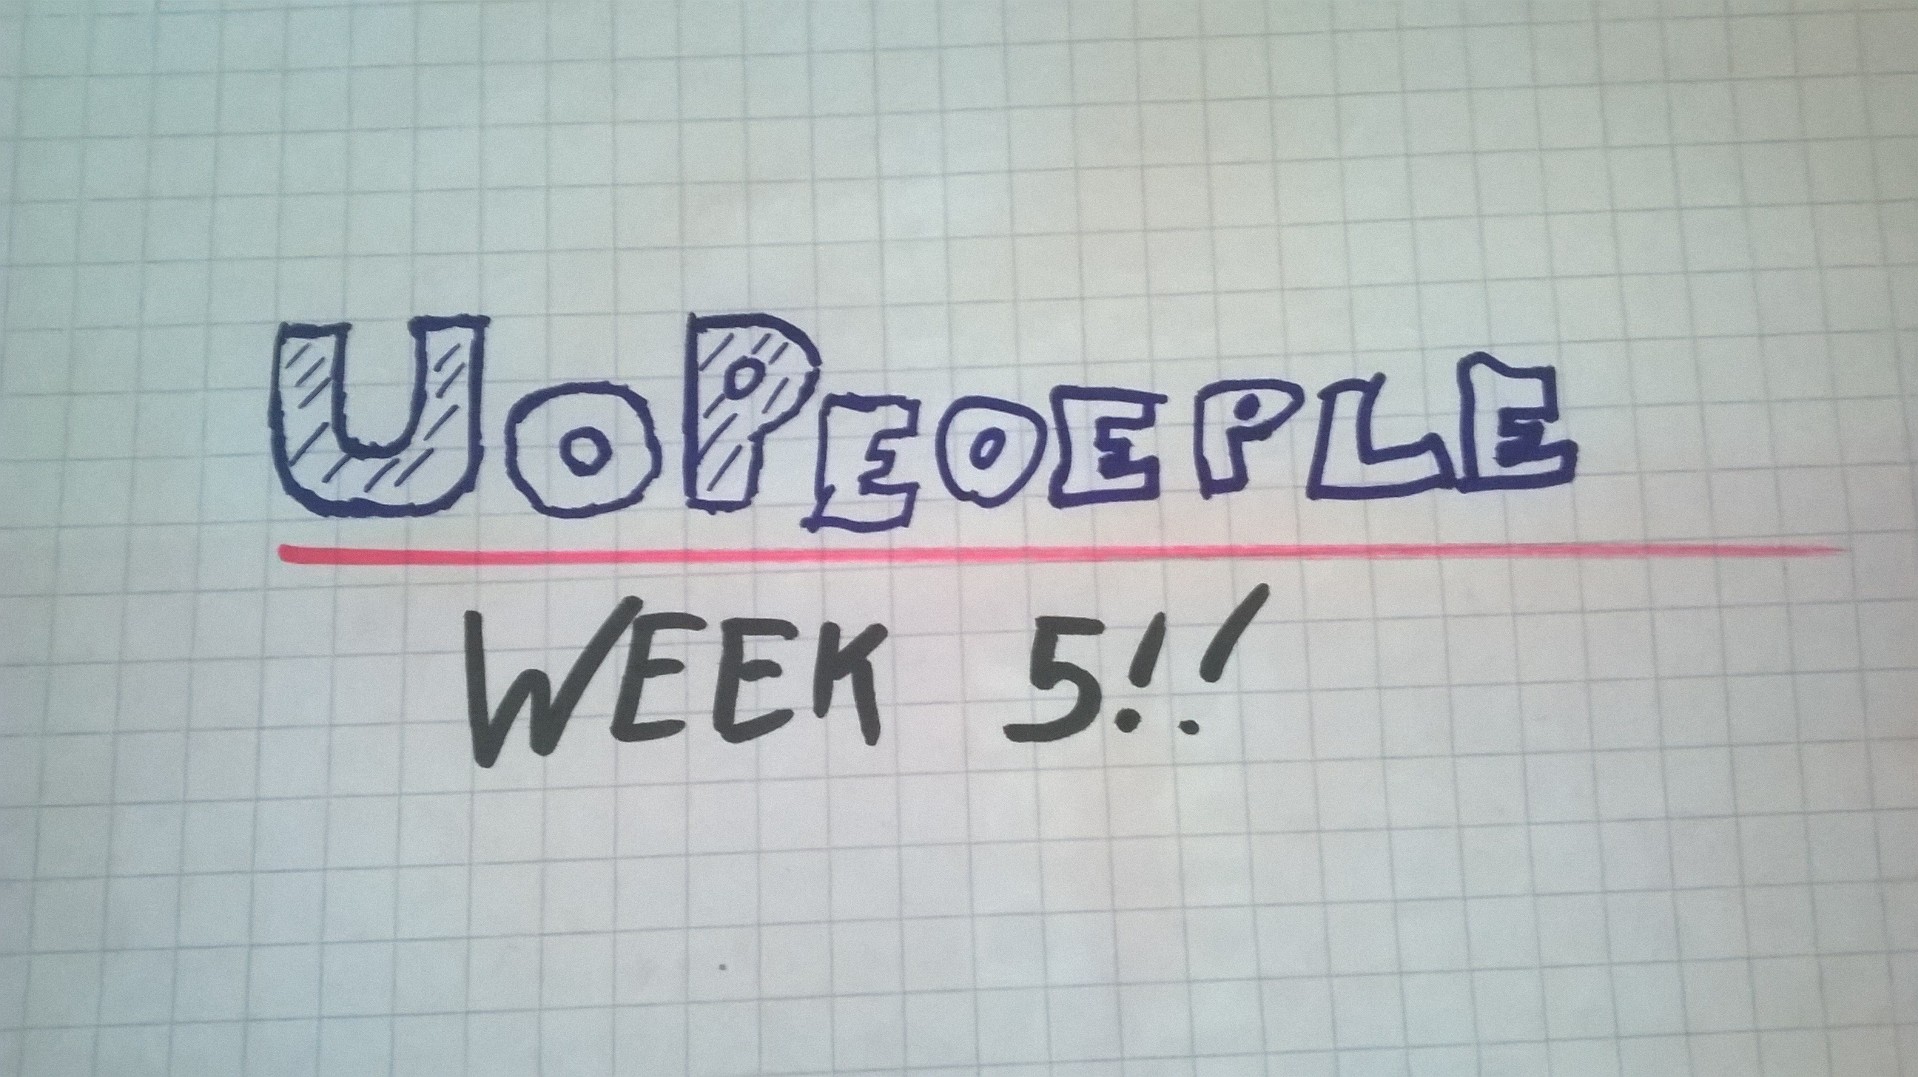 UoPEOEPLE
WEEK 5!!